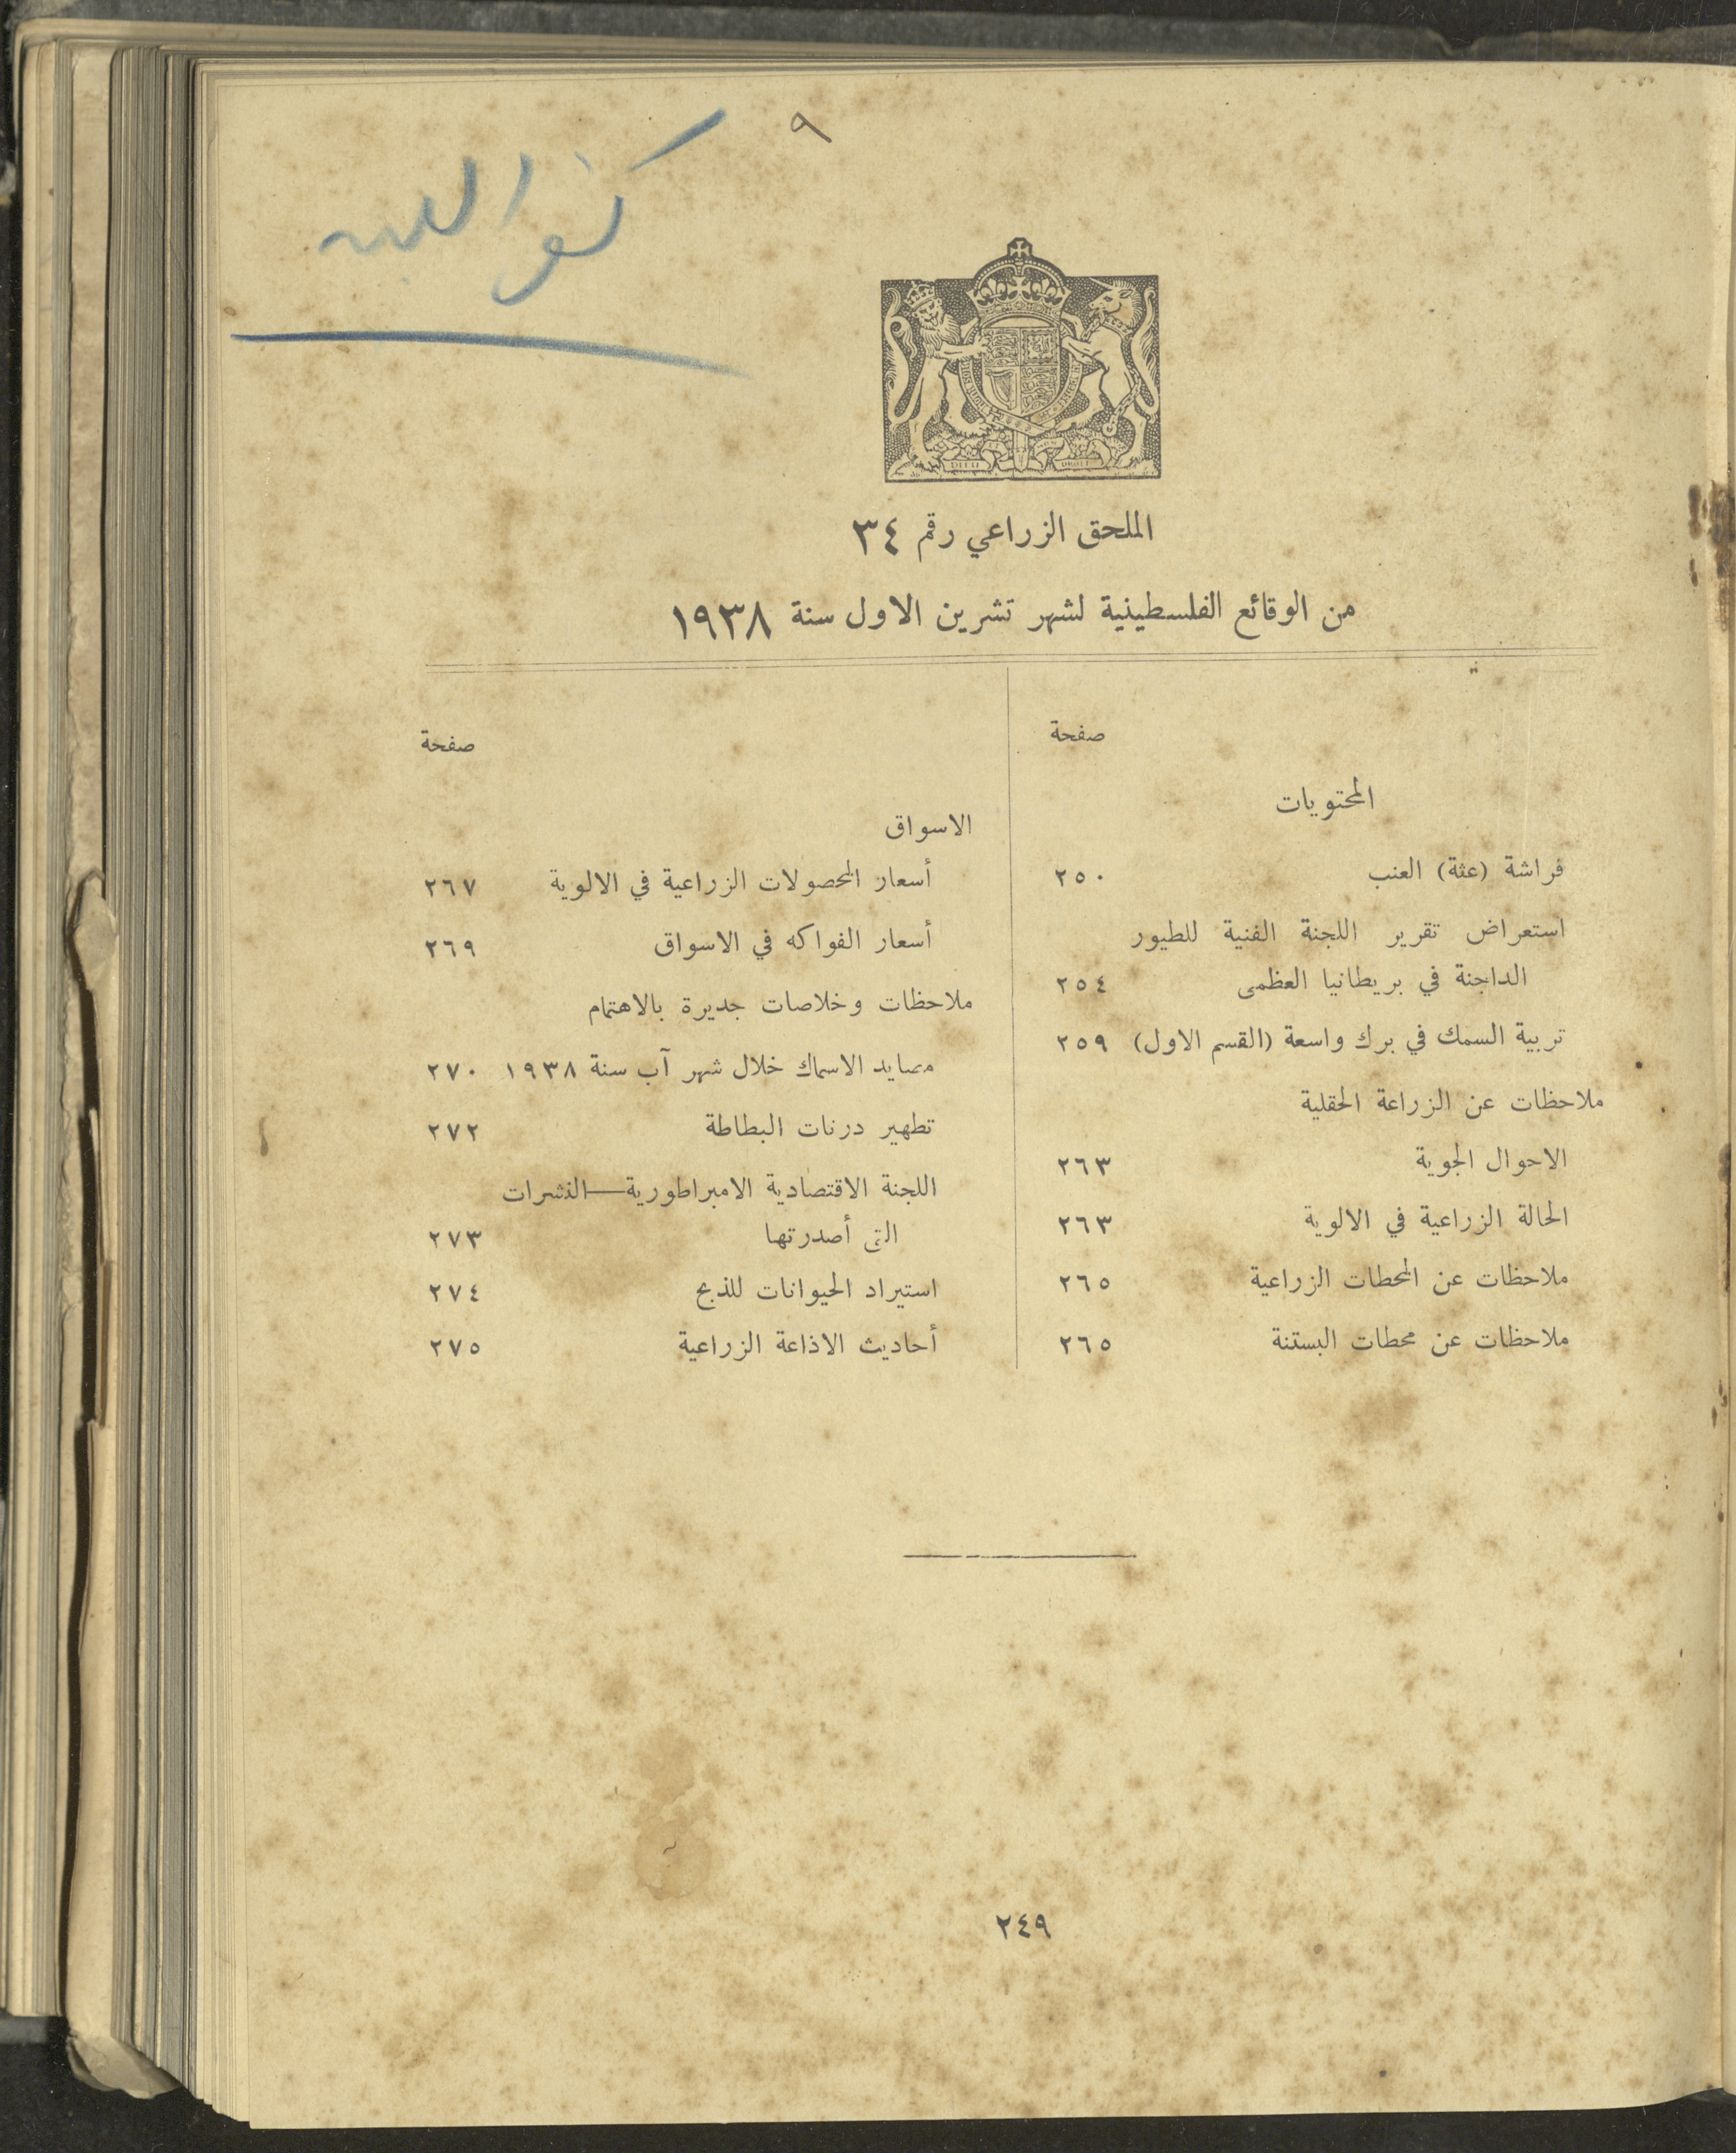 ٩
الملحق الزراعي رقم ٣٤
من الوقائع الفلسطينية لشهر تشرين الاول سنة ١٩٣٨
صفحة
المحتويات
فراشة (عثة) العنب ٢٥٠
استعراض تقرير اللجنة الفنية للطيور
الداجنة في بريطانيا العظمى ٢٥٤
تربية السمك في برك واسعة (القسم الاول) ٢٥٩
ملاحظات عن الزراعة الحقلية
الاحوال الجوية ٢٦٣
الحالة الزراعية في الالوية ٢٦٣
ملاحظات عن المحطات الزراعية ٢٦٥
ملاحظات عن محطات البستنة ٢٦٥
صفحة
الاسواق
أسعار المحصولات الزراعية في الالوية ٢٦٧
أسعار الفواكه في الاسواق ٢٦٩
ملاحظات وخلاصات جديرة بالاهتمام
مصايد الاسماك خلال شهر آب سنة ١٩٣٨ ٢٧٠
تطهير درنات البطاطة ٢٧٢
اللجنة الاقتصادية الامبراطورية—النشرات
التى أصدرتها ٢٧٣
استيراد الحيوانات للذبح ٢٧٤
أحاديث الاذاعة الزراعية ٢٧٥
٢٤٩